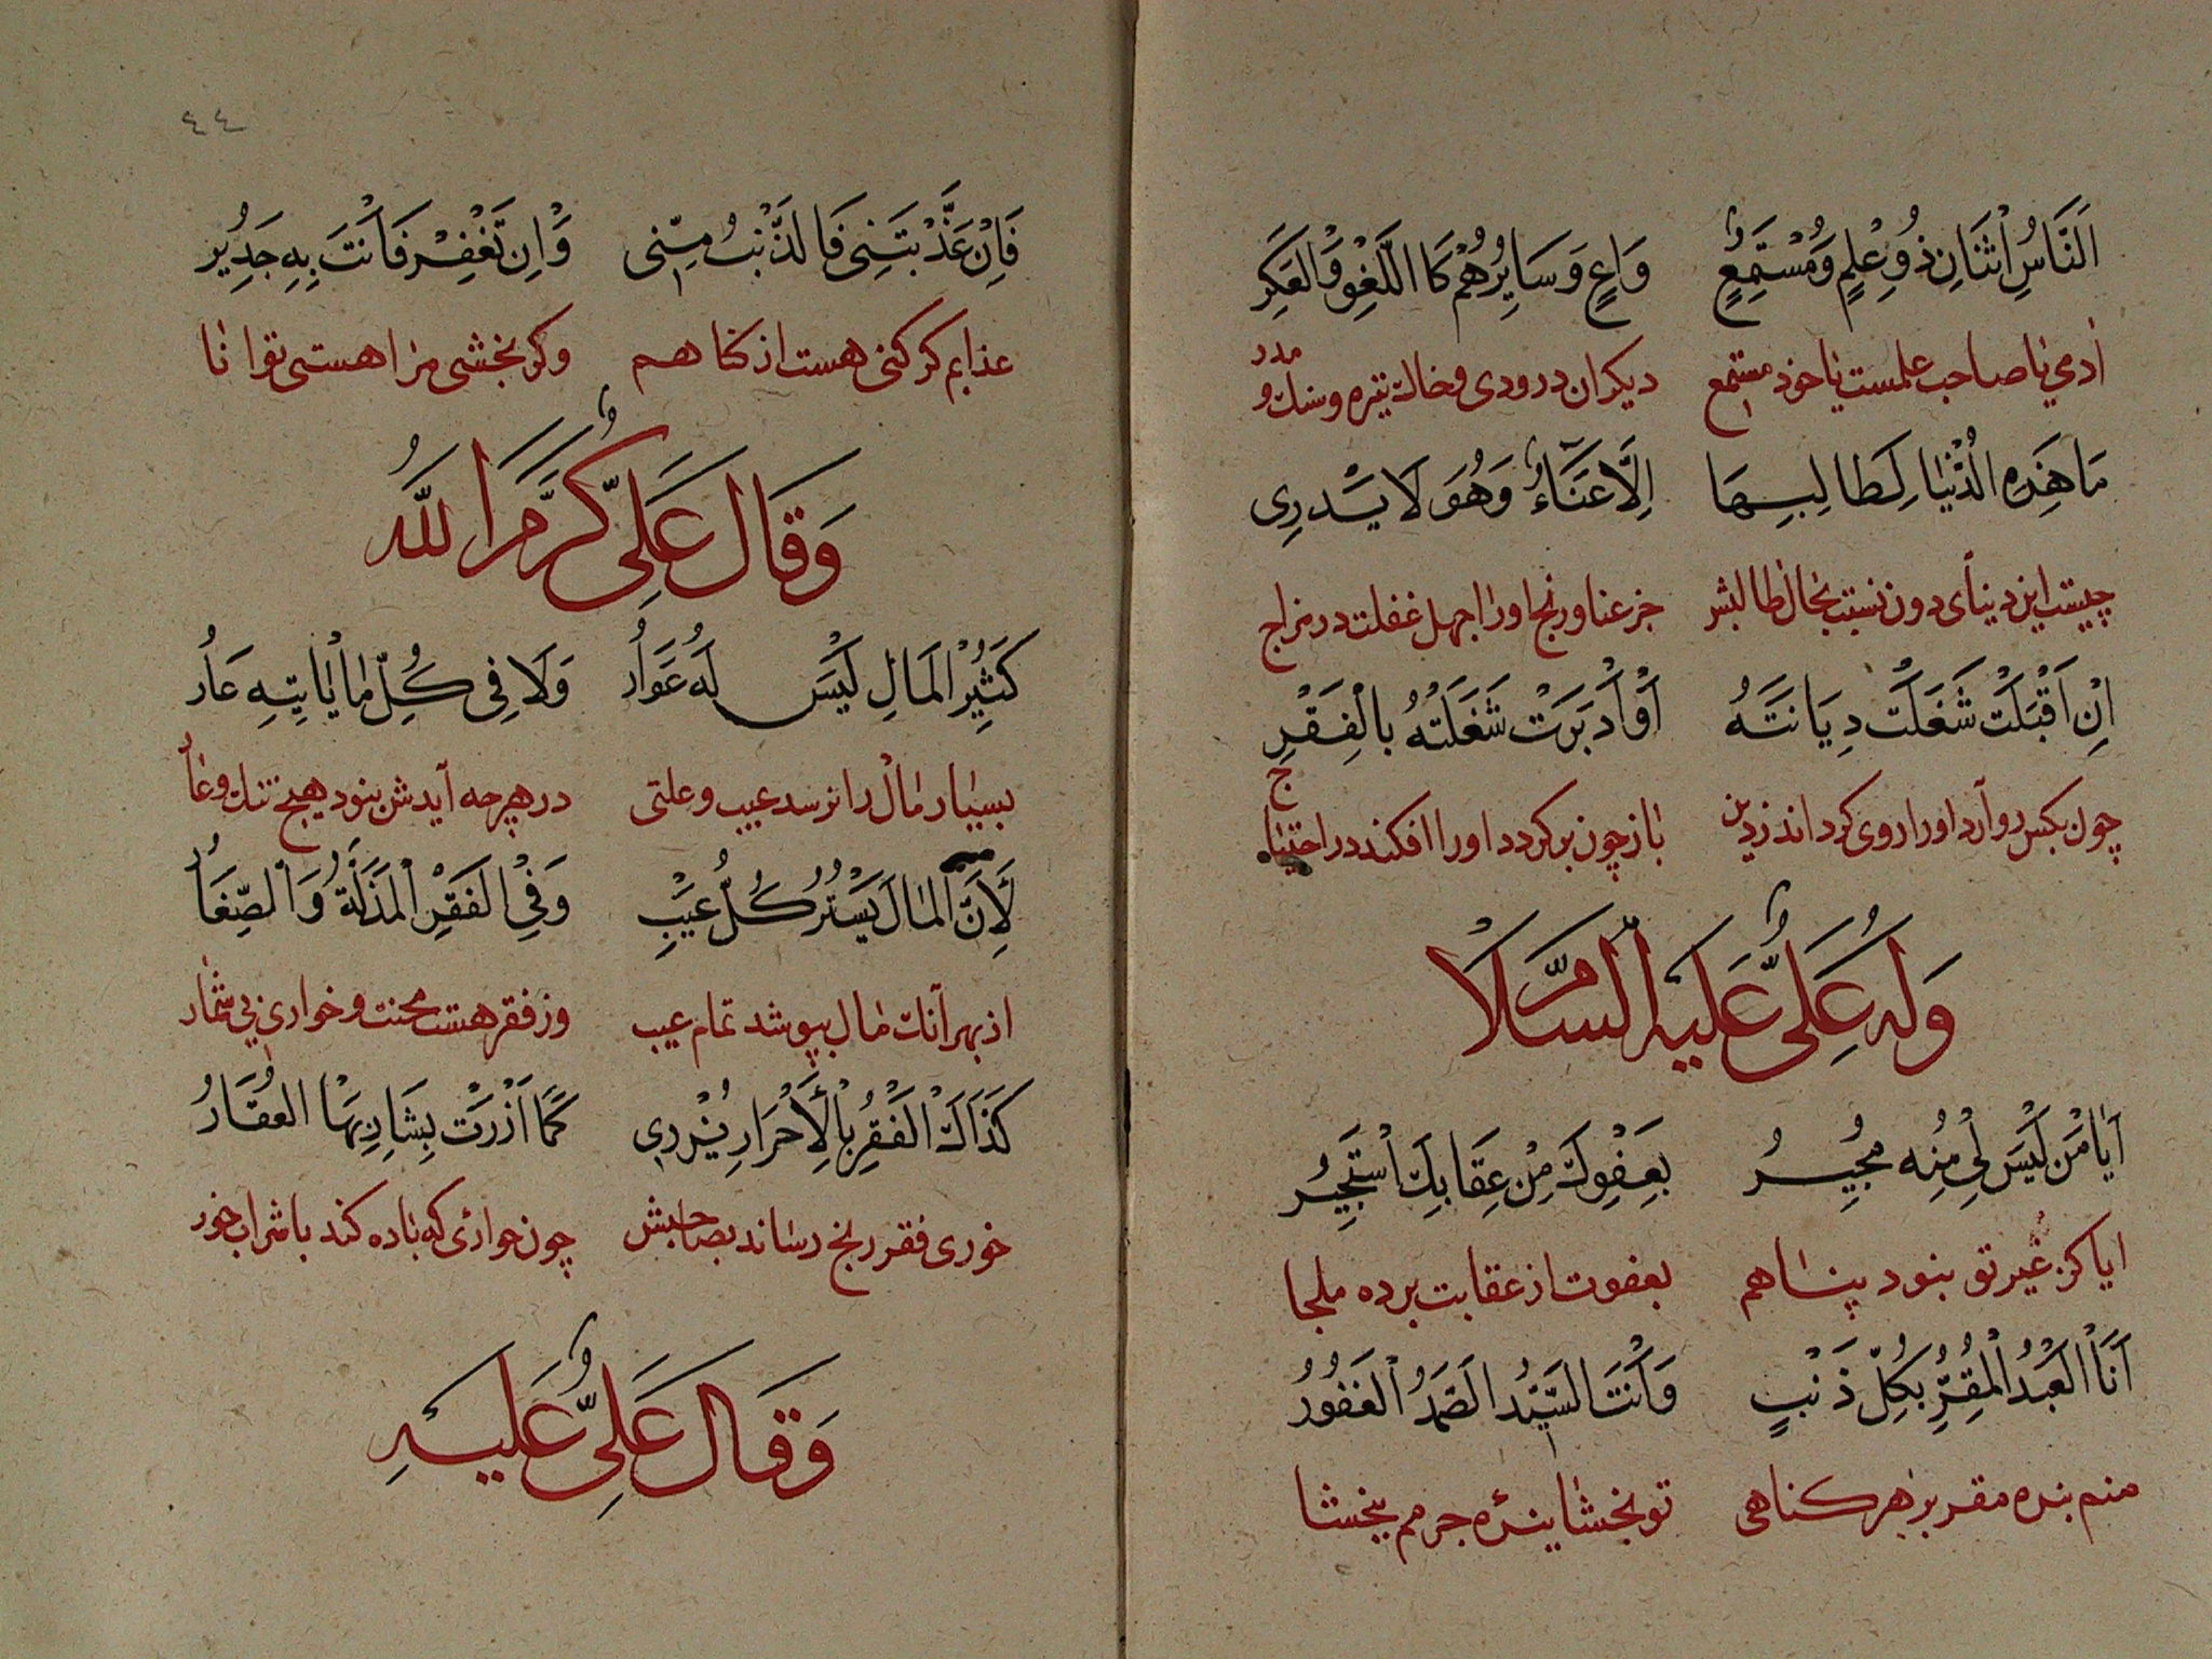 اَلنَّاسُ اثْنَانِ ذُو عِلْمٍ وَمُسْتَمِعٍ وَاعٍ وَسَايِرُهُمْ كَا اللَّغْوِ وَالْعَكَرِ
ادمی یا صاحب علمست یا خود مستمع دیکران دردودی و خال تیره وسنك و مدر
مَا هَذِهِ الدُّنْيَا لِطَالِبِهَا اِلَّا عَنَاءٌ وَهُوَ لَا يَدْرِى
چیست این دینای دون نسبت بحال طالبش جز عنا و رنج اورا جهل غفلت در مزاج
اِنْ اَقْبَلَتْ شَغَلَتْ دِيَانَتَهُ اَوْ اَدْبَرَتْ شَغَلَتْهُ بِالْفَقْرِ
چون بکس رو آرد اورا روی کرداند زدین باز چون برکردد اورا افکند در احتیاج
وَلَهُ عَلِىٌّ عَلَيْهِ السَّلَامْ
اَيَا مَنْ لَيْسَ لِى مِنْهُ مُجِيرُ بِعَفْوِكَ مِنْ عِقَابِكَ اَسْتَجِيرُ
ایا کز غیر تو نبود پناهم بعفوت از عقابت برده ملجا
اَنَا الْعَبْدُ الْمُقِرُّ بِكُلِّ ذَنْبٍ وَاَنْتَ السَّيِّدُ الصَّمَدُ الْغَفُورُ
منم بنده مقر بر هر کناهی تو بخشاینده جرمم ببخشا
٤٤
فَاِنْ عَذَّبْتَنِى فَالذَّنْبُ مِنِّى وَاِنْ تَغْفِرْ فَاَنْتَ بِهِ جَدِيرُ
عذابم کر کنی هست از کناهم وکر بخشی مرا هستی توانا
وَقَالَ عَلِىٌّ كَرَّمَ اللهُ
كَثِيرُ الْمَالِ لَيْسَ لَهُ عَوَارُ وَلَا فِى كُلِّ مَا يَاْتِيهِ عَارُ
بسیار مال را نرسد عیب وعلتی در هر چه آیدش نبود هیچ ننك وعار
لِاَنَّ الْمَالَ يَسْتُرُ كُلَّ عَيْبٍ وَفِى الْفَقْرِ الْمَذَلَّةُ وَالصِّغَارُ
از بهر آنك مال بپوشد تمام عیب وز فقر هست محنت و خواری بی شمار
كَذَاكَ الْفَقْرُ بِالْاَحْرَارِ يُزْرِى كَمَا اَزْرَتْ بِشَارِبِهَا الْعُقَارُ
خوری فقر رنج رساند بصاحبش چون خواری که باده کند با شراب خور
وَقَالَ عَلِىٌّ عَلَيْهِ